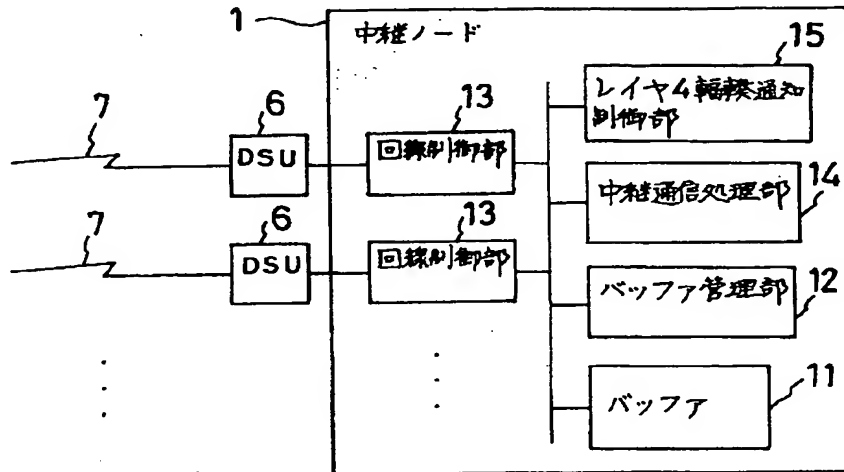 1
中継ノード
15
レイヤ4輻輳通知
制御部
7
6
DSU
13
回線制御部
中継通信処理部
14
7
6
DSU
13
回線制御部
バッファ管理部
12
バッファ
11